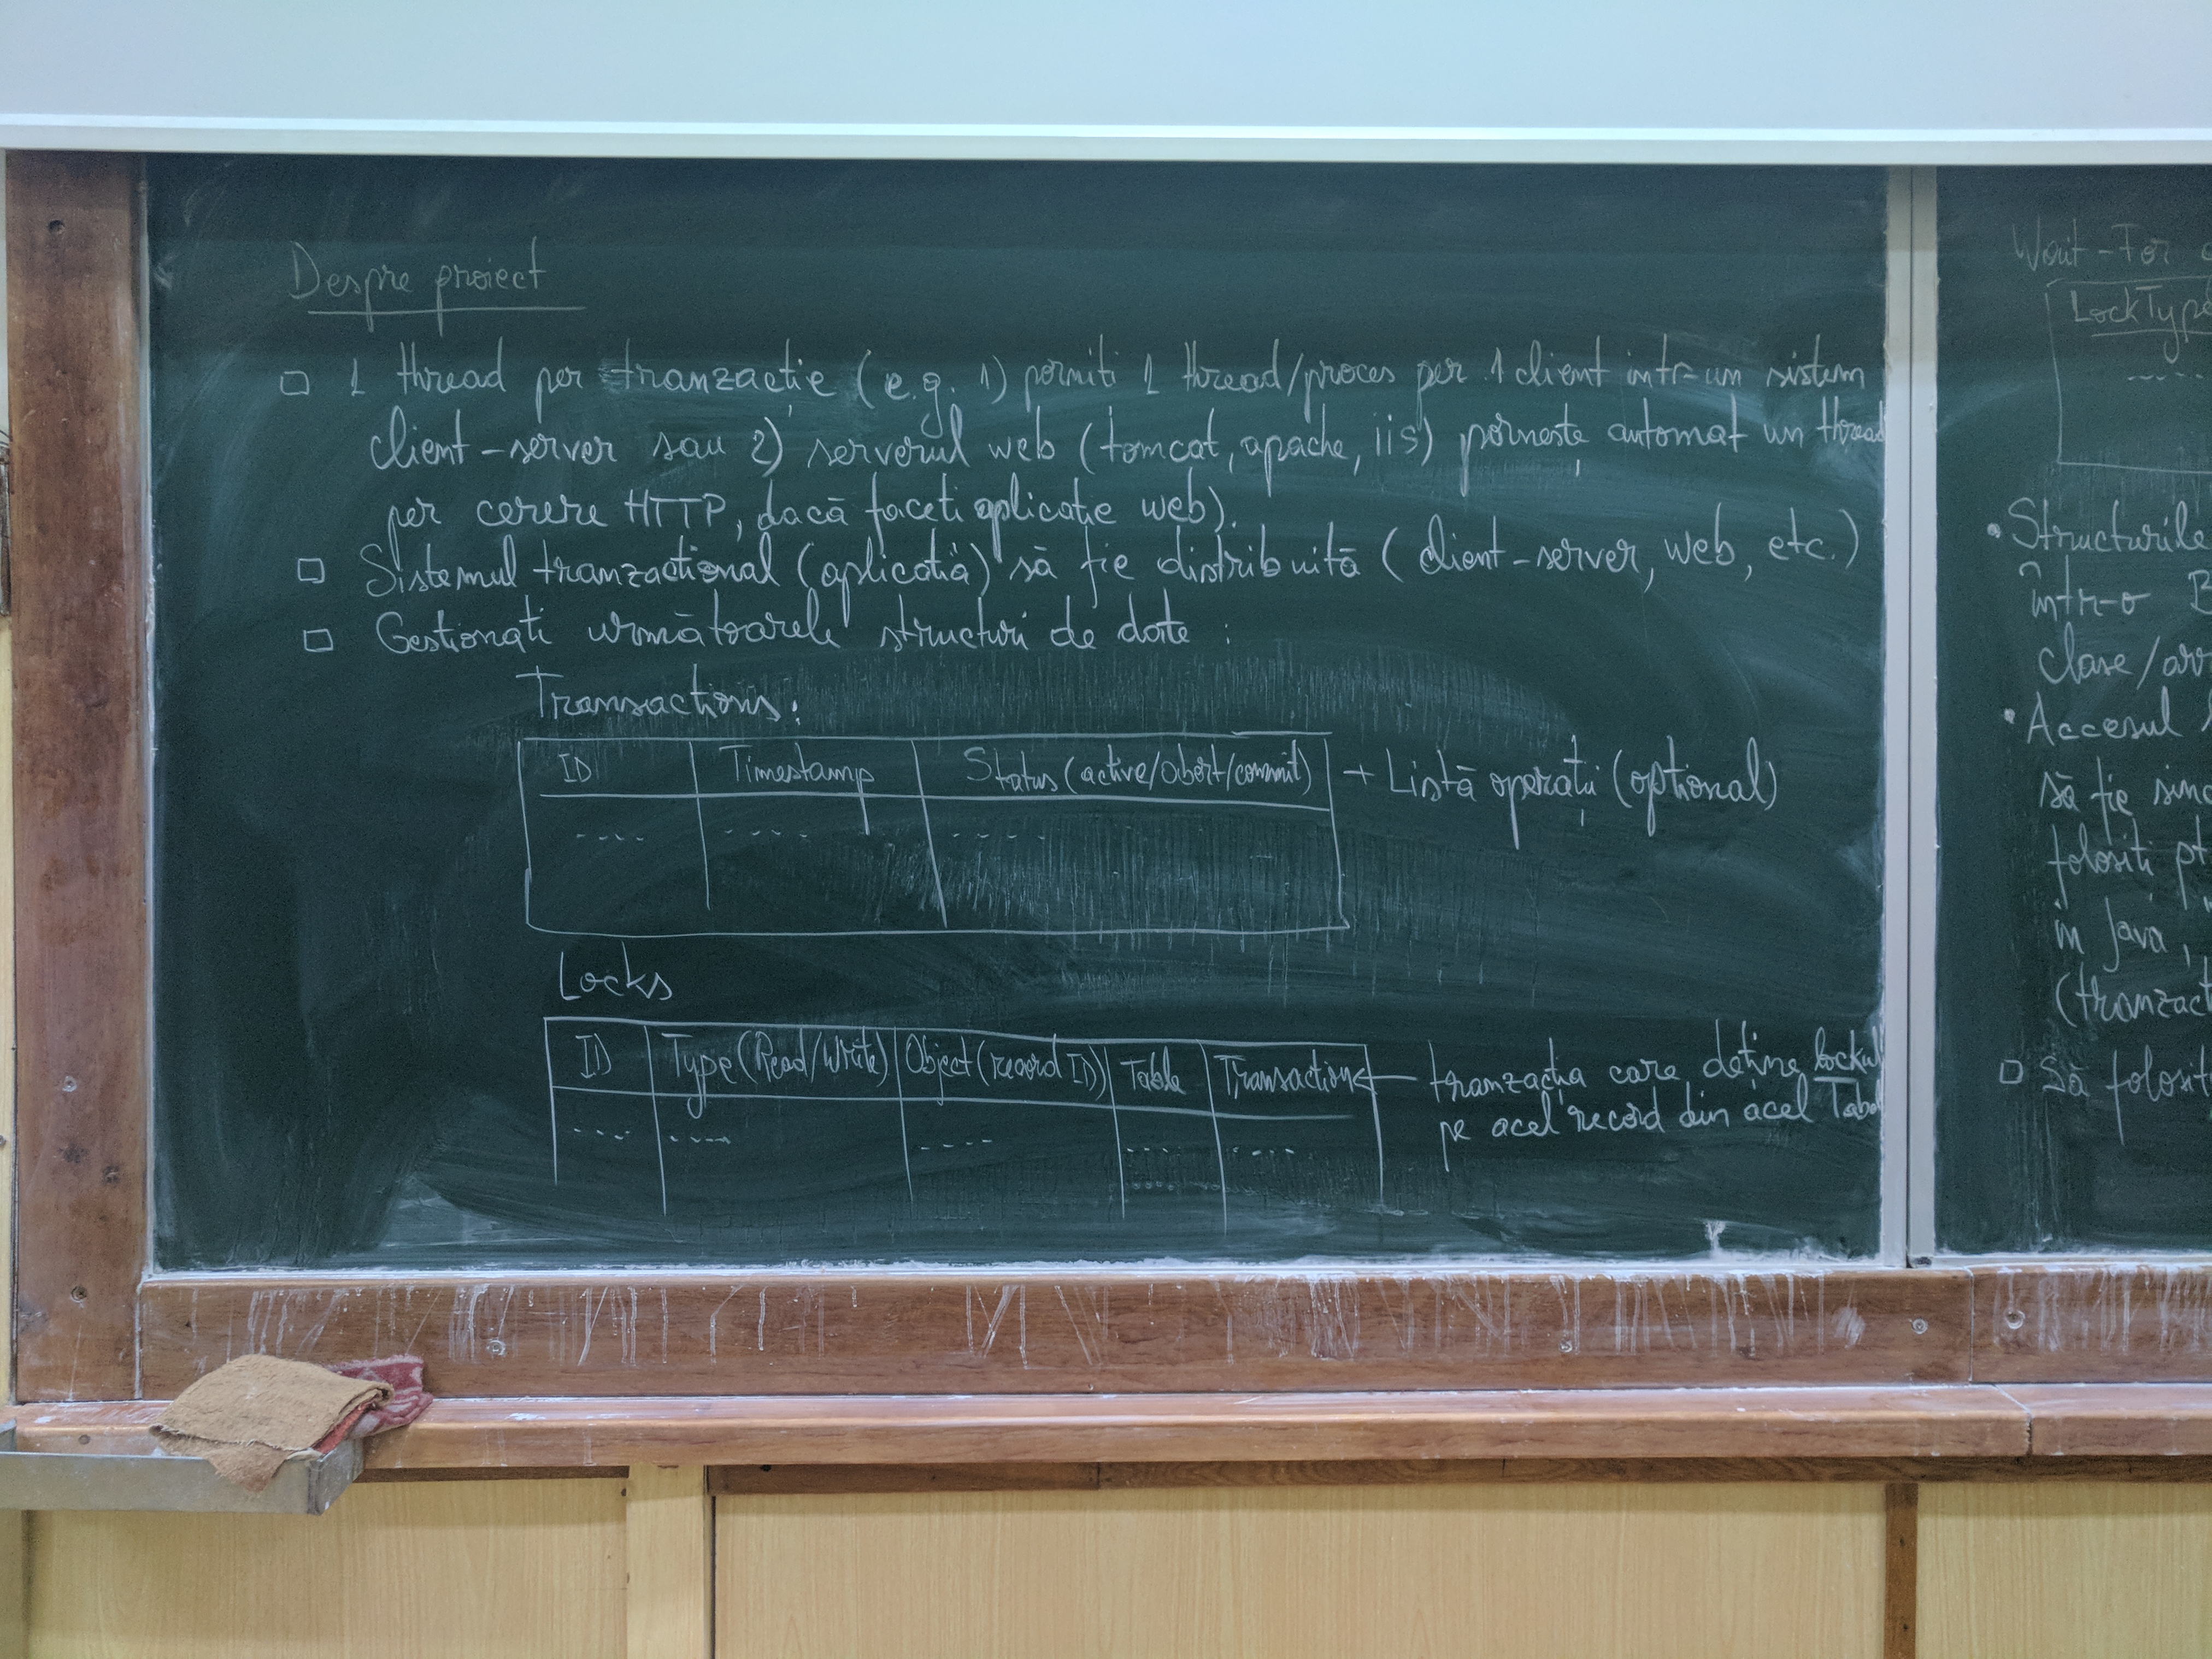 Despre proiect
1 thread per tranzacție (e.g. 1) porniti 1 thread/proces per 1 client intr-un sistem
client-server sau 2) serverul web (tomcat, apache, iis) pornește automat un thread
per cerere HTTP, dacă faceti aplicatie web).
Sistemul tranzactional (aplicatia) să fie distribuită (client-server, web, etc.)
Gestionati următoarele structuri de date :
Transactions:
ID Timestamp Status (active/abort/commit) + Listă operații (optional)
.... .... ....
Locks
ID Type (Read/Write) Object (record ID) Table Transaction ← tranzacția care deține lockul
pe acel record din acel Tabel
.... .... .... .... ....
Wait-For
LockType
.....
• Structurile
într-o B
clase/
• Accesul
să fie sinc
folositi pt
in Java,
(tranzact
Să folosit